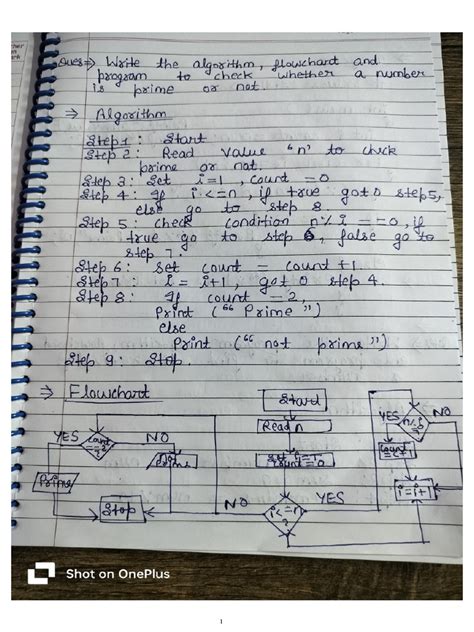 Ques⇒ Write the algorithm, flowchart and
program to check whether a number
is prime or not.
⇒ Algorithm
Step 1 : Start
Step 2 : Read value "n" to check
prime or not.
Step 3 : Set i=1, count =0
Step 4 : If i<=n, if true goto step 5,
else go to step 8
Step 5 : check condition n% i ==0, if
true go to step 6, false go to
step 7.
Step 6 : Set count = count +1
Step 7 : i= i+1, goto step 4.
Step 8 : If count =2,
Print ("Prime")
else
Print ("not prime")
Step 9 : Stop.
⇒ Flowchart
Start
Read n
Set i=1,
count =0
i<=n
?
YES
NO
YES
NO
count
+1
i=i+1
YES
count
NO
Prime
Not
Prime
Stop
Shot on OnePlus
1